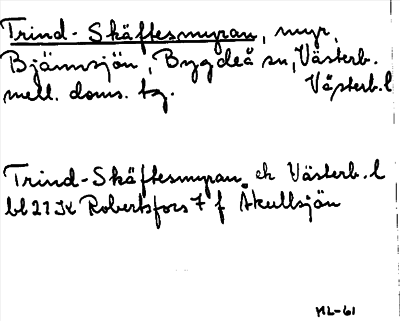 Trind-Skäftesmyran, myr,
Bjännsjön, Bygdeå sn, Västerb.
mell. doms. tg. Västerb. l
Trind-Skäftesmyran ek Västerb. l
bl 21 JK Robertsfors 7 f Åkullsjön
ML-61